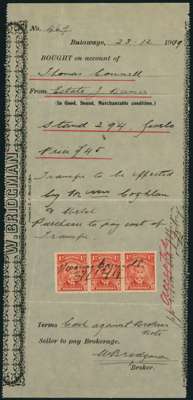 No. 467
Bulawayo, 23-12 190
BOUGHT on account of
Thomas Connell
From Estate J.
(In Good, Sound, Merchantable condition.)
Stand 294
Price £45
Transfer to be effected
by Coghlan
&
Purchaser to pay cost of
Transfer.
W. BRIDGMAN
Terms Cash against Brokers
Note
Seller to pay Brokerage.
W Bridgman
Broker.